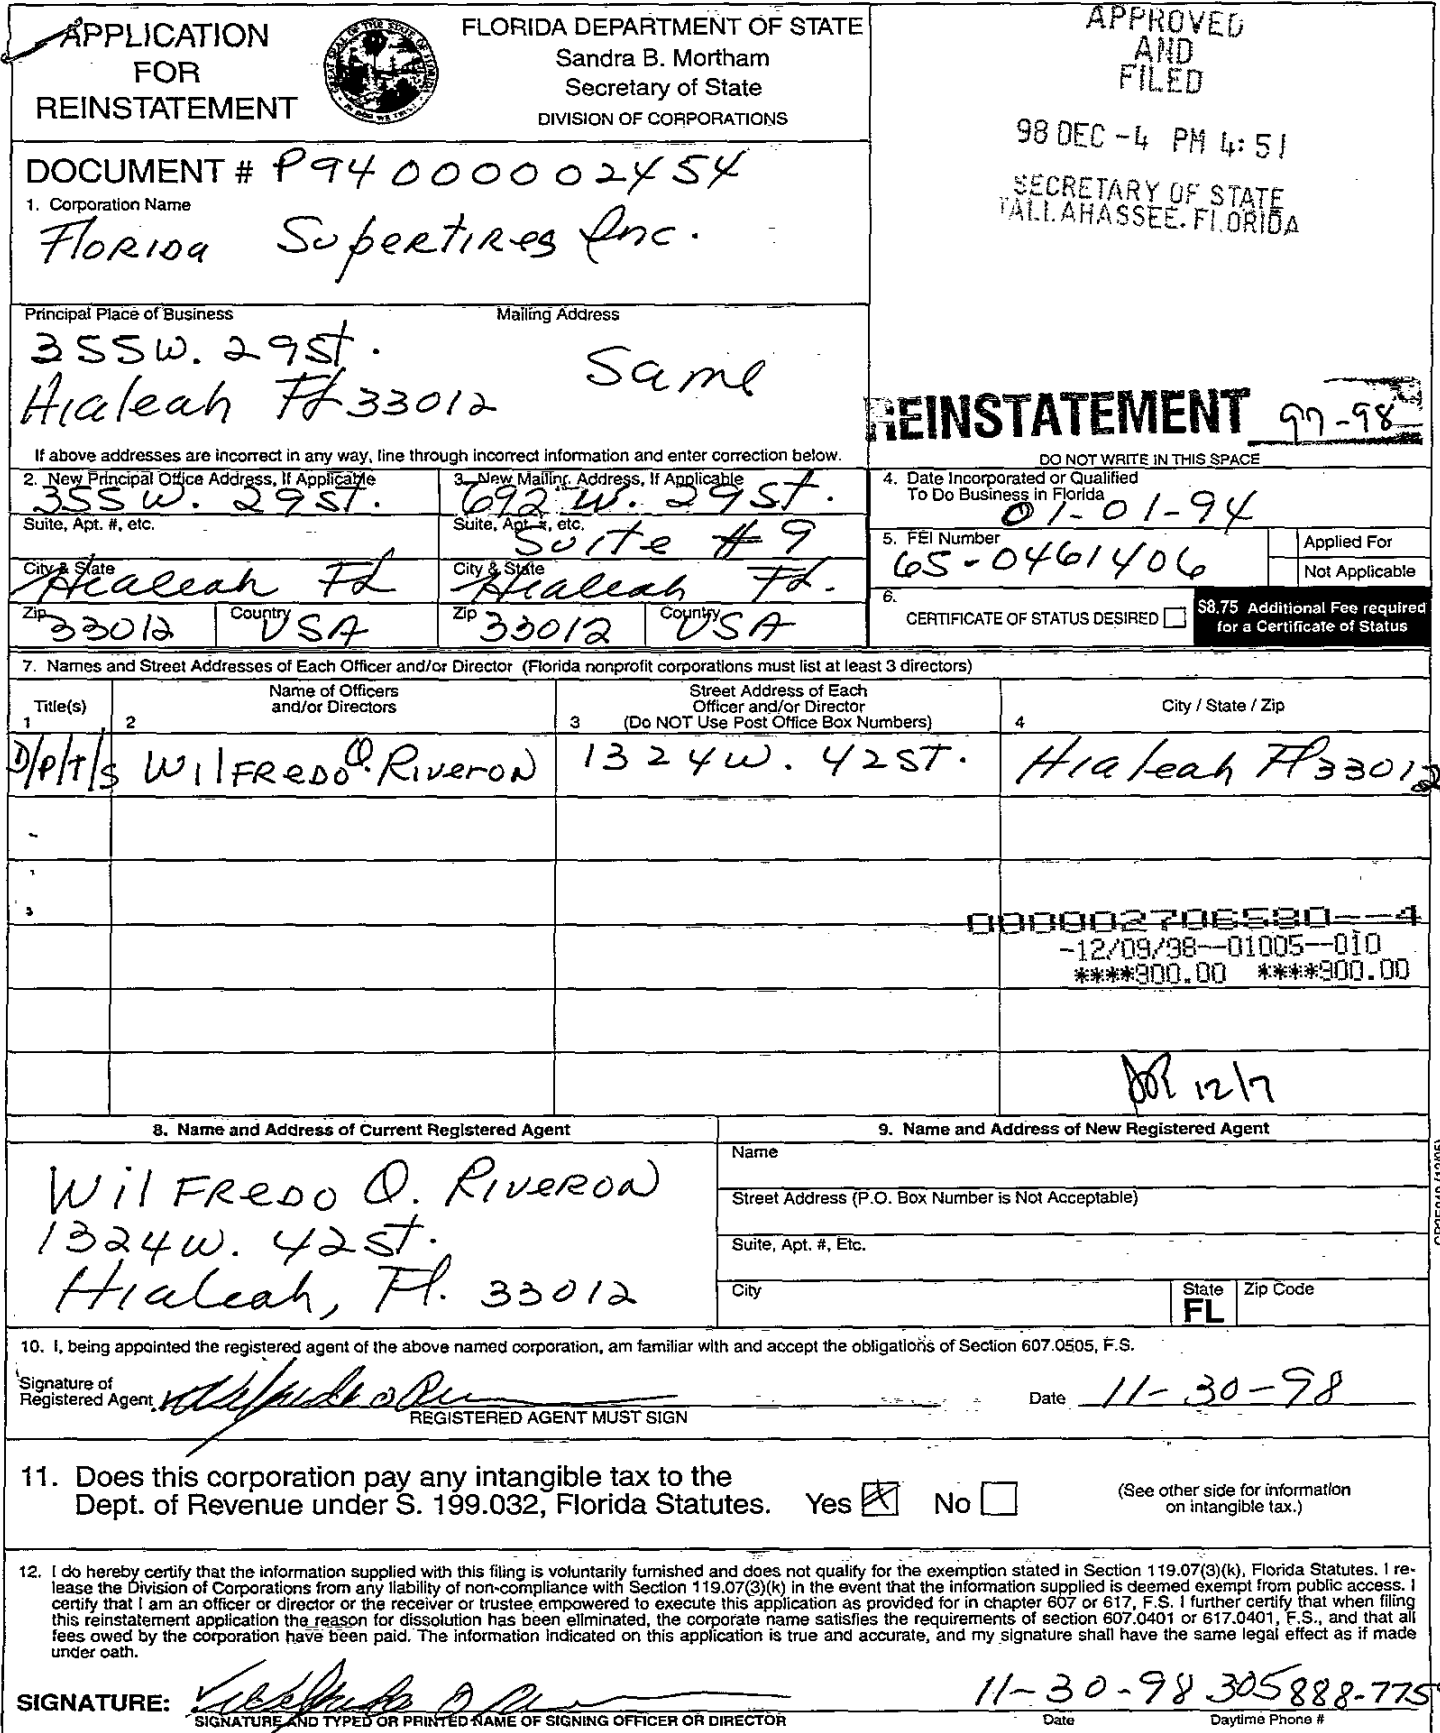 APPLICATION
FOR
REINSTATEMENT
FLORIDA DEPARTMENT OF STATE
Sandra B. Mortham
Secretary of State
DIVISION OF CORPORATIONS
APPROVED
AND
FILED
98 DEC -4 PM 4:51
SECRETARY OF STATE
TALLAHASSEE, FLORIDA
DOCUMENT # P94000002454
1. Corporation Name
Florida Supertires Inc.
Principal Place of Business
Mailing Address
355 W. 29 St.
Same
Hialeah Fl 33012
REINSTATEMENT 97-98
If above addresses are incorrect in any way, line through incorrect information and enter correction below.
DO NOT WRITE IN THIS SPACE
2. New Principal Office Address, If Applicable
355 W. 29 St.
3. New Mailing Address, If Applicable
692 W. 29 St.
4. Date Incorporated or Qualified
To Do Business in Florida
01-01-94
Suite, Apt. #, etc.
Suite, Apt. #, etc.
Suite # 9
5. FEI Number
65-0461406
Applied For
Not Applicable
City & State
Hialeah FL
City & State
Hialeah FL.
6.
CERTIFICATE OF STATUS DESIRED
$8.75 Additional Fee required
for a Certificate of Status
Zip
33012
Country
USA
Zip
33012
Country
USA
7. Names and Street Addresses of Each Officer and/or Director (Florida nonprofit corporations must list at least 3 directors)
Title(s)
1
Name of Officers
and/or Directors
2
Street Address of Each
Officer and/or Director
3 (Do NOT Use Post Office Box Numbers)
City / State / Zip
4
D/P/T/S Wilfredo O. Riveron 1324 W. 42 St. Hialeah Fl 33012
000002706580--4
-12/09/98--01005--010
****900.00 ****900.00
12/7
8. Name and Address of Current Registered Agent
Wilfredo O. Riveron
1324 W. 42 St.
Hialeah, Fl. 33012
9. Name and Address of New Registered Agent
Name
Street Address (P.O. Box Number is Not Acceptable)
Suite, Apt. #, Etc.
City
State
FL
Zip Code
10. I, being appointed the registered agent of the above named corporation, am familiar with and accept the obligations of Section 607.0505, F.S.
Signature of
Registered Agent
REGISTERED AGENT MUST SIGN
Date 11-30-98
11. Does this corporation pay any intangible tax to the
Dept. of Revenue under S. 199.032, Florida Statutes. Yes No
(See other side for information
on intangible tax.)
12. I do hereby certify that the information supplied with this filing is voluntarily furnished and does not qualify for the exemption stated in Section 119.07(3)(k), Florida Statutes. I re-
lease the Division of Corporations from any liability of non-compliance with Section 119.07(3)(k) in the event that the information supplied is deemed exempt from public access. I
certify that I am an officer or director or the receiver or trustee empowered to execute this application as provided for in chapter 607 or 617, F.S. I further certify that when filing
this reinstatement application the reason for dissolution has been eliminated, the corporate name satisfies the requirements of section 607.0401 or 617.0401, F.S., and that all
fees owed by the corporation have been paid. The information indicated on this application is true and accurate, and my signature shall have the same legal effect as if made
under oath.
SIGNATURE:
11-30-98 305 888-775
SIGNATURE AND TYPED OR PRINTED NAME OF SIGNING OFFICER OR DIRECTOR
Date
Daytime Phone #